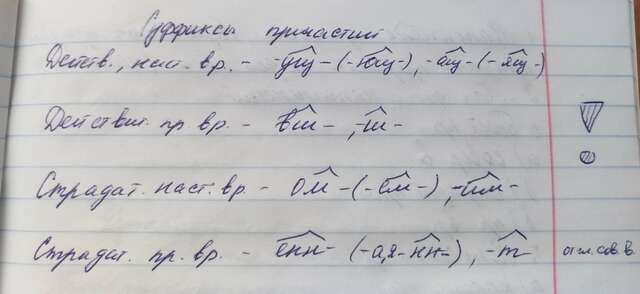 Суффиксы причастий
Действ., наст. вр. - -ущ- (-ющ-), -ащ- (-ящ-)
Действит. пр вр. - вш-, -ш-
Страдат. наст. вр. - ом-(-ем-), -им-
Страдат. пр. вр. - енн- (-а,я-нн-), -т- от гл. сов. в.